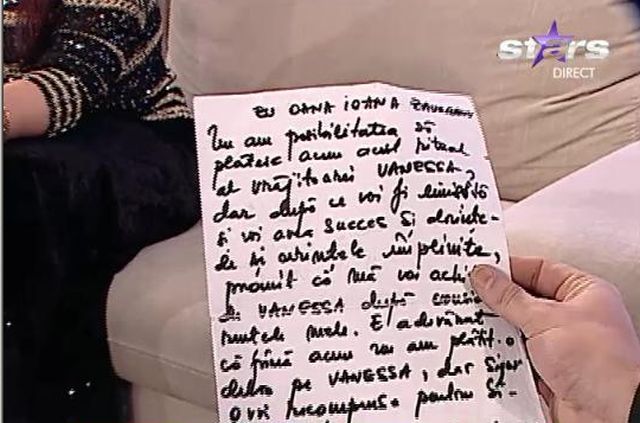 stars
DIRECT
EU OANA IOANA
Nu am posibilitatea să
plătesc acum acel ritual
al vrăjitoarei VANESSA,
dar după ce voi fi
și voi avea succes și dorințe-
le și dorințele împlinite,
promit că mă voi
de VANESSA după
mele. E adevărat
că până acum nu am plătit-o
deloc pe VANESSA, dar sigur
o voi recompensa pentru